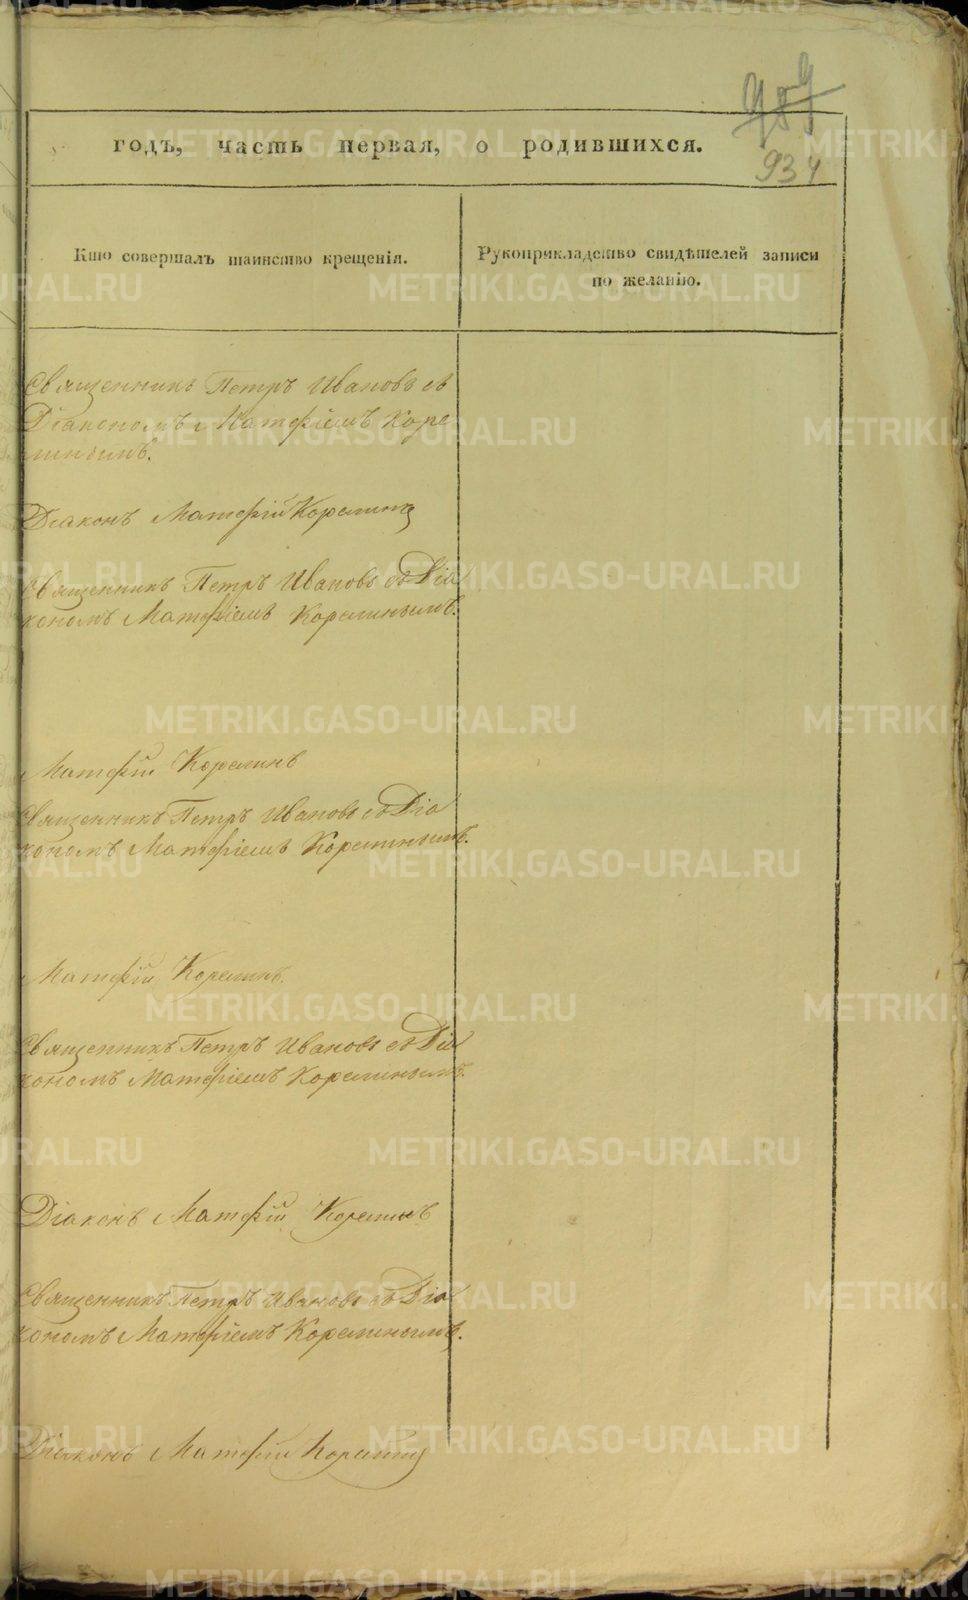 959
934
годъ, часть первая, о родившихся.
Кто совершалъ таинство крещенія.
Рукоприкладство свидѣтелей записи
по желанію.
Священникъ Петръ Ивановъ съ
Діакономъ Матфіемъ Коре
линымъ.
Діаконъ Матфій Корелинъ
Священникъ Петръ Ивановъ съ Діа
кономъ Матфіемъ Корелинымъ.
Матфій Корелинъ
Священникъ Петръ Ивановъ съ Діа
кономъ Матфіемъ Корелинымъ.
Матфій Корелинъ.
Священникъ Петръ Ивановъ съ Діа
кономъ Матфіемъ Корелинымъ.
Діаконъ Матфій Корелинъ
Священникъ Петръ Ивановъ съ Діа
кономъ Матфіемъ Корелинымъ.
Діаконъ Матфій Корелинъ
METRIKI.GASO-URAL.RU